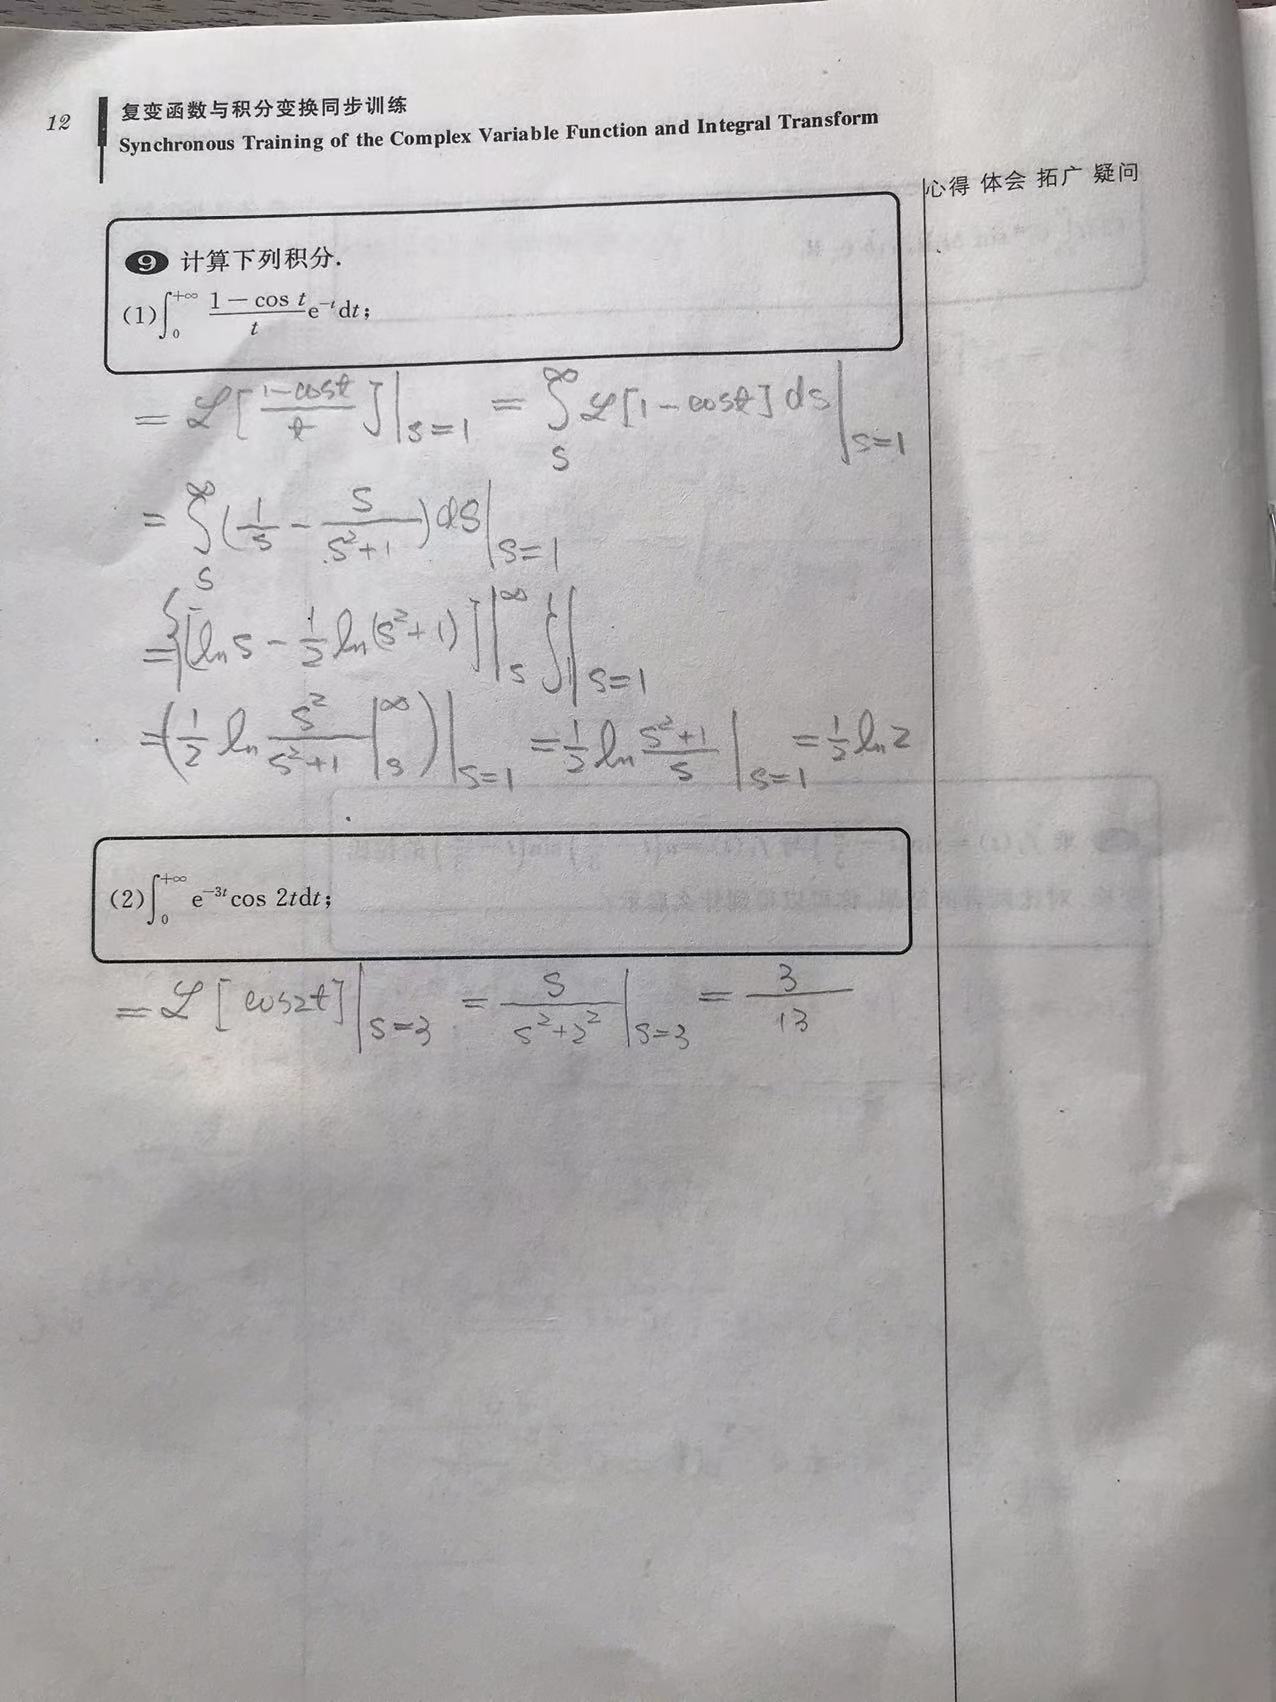 12
复变函数与积分变换同步训练
Synchronous Training of the Complex Variable Function and Integral Transform
心得 体会 拓广 疑问
9 计算下列积分.
(1)∫₀^{+∞} (1－cos t)/t e^{-t}dt;
= ℒ[(1-cost)/t]|_{s=1} = ∫_s^∞ ℒ[1-cost]ds|_{s=1}
= ∫_s^∞ (1/s - s/(s²+1))ds|_{s=1}
= {[ln s - 1/2 ln(s²+1)]|_s^∞}|_{s=1}
= (1/2 ln s²/(s²+1)|_s^∞)|_{s=1} = 1/2 ln (s²+1)/s|_{s=1} = 1/2 ln2
(2)∫₀^{+∞} e^{-3t}cos 2tdt;
= ℒ[cos2t]|_{s=3} = s/(s²+2²)|_{s=3} = 3/13